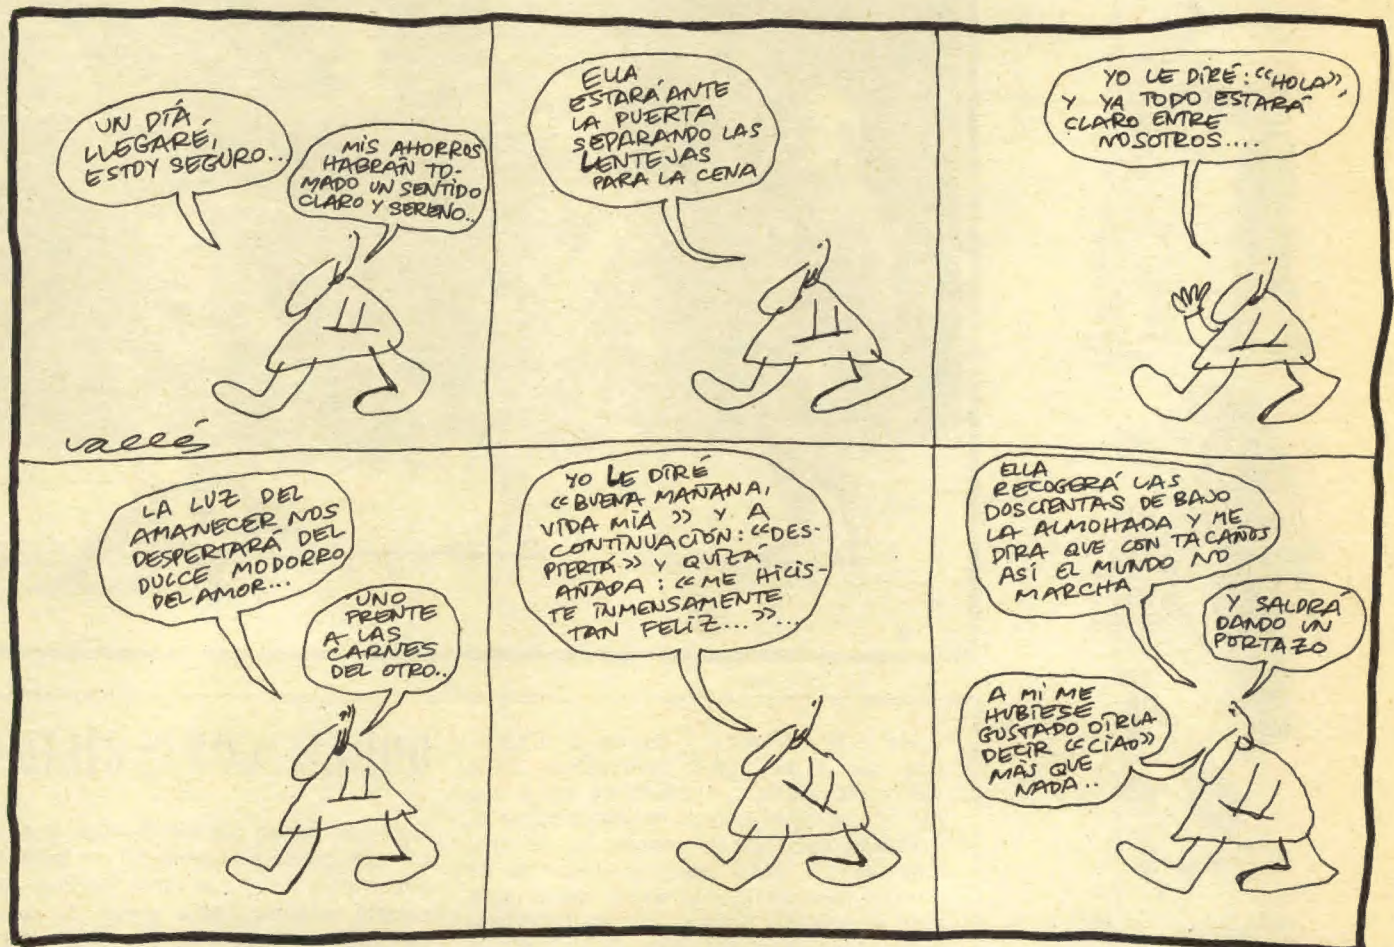 UN DÍA
LLEGARÉ,
ESTOY SEGURO..
MIS AHORROS
HABRÁN TO-
MADO UN SENTIDO
CLARO Y SERENO..
ELLA
ESTARÁ ANTE
LA PUERTA
SEPARANDO LAS
LENTEJAS
PARA LA CENA
YO LE DIRÉ: «HOLA»,
Y YA TODO ESTARÁ
CLARO ENTRE
NOSOTROS....
vallés
LA LUZ DEL
AMANECER NOS
DESPERTARÁ DEL
DULCE MODORRO
DEL AMOR...
UNO
FRENTE
A LAS
CARNES
DEL OTRO..
YO LE DIRÉ
«BUENA MAÑANA,
VIDA MÍA» Y A
CONTINUACIÓN: «DES-
PIERTA» Y QUIZÁ
AÑADA: «ME HICIS-
TE INMENSAMENTE
TAN FELIZ...»...
ELLA
RECOGERÁ LAS
DOSCIENTAS DE BAJO
LA ALMOHADA Y ME
DIRA QUE CON TACAÑOS
ASÍ EL MUNDO NO
MARCHA
Y SALDRÁ
DANDO UN
PORTAZO
A MI ME
HUBIESE
GUSTADO OIRLA
DECIR «CIAO»
MÁS QUE
NADA..